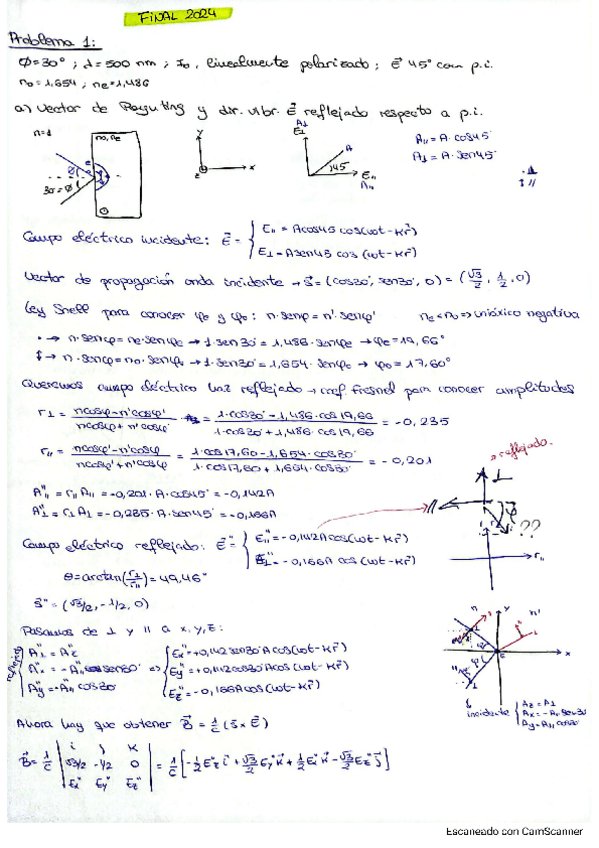 FINAL 2024
Problema 1:
Φ=30° ; λ=500 nm ; I₀, linealmente polarizado ; E⃗ 45° con p.i.
n₀=1,654 ; nₑ=1,486
a) Vector de Poynting y dir. vibr. E⃗ reflejado respecto a p.i.
n=1
n₀, nₑ
30=Φ
y
x
z
A⊥
E⊥
A
45
E∥
A∥
A∥ = A·cos45
A⊥ = A·sen45
·⊥
↕∥
Campo eléctrico incidente: E⃗ = { E∥ = A cos45 cos(ωt - Kr⃗)
E⊥ = A sen45 cos(ωt - Kr⃗)
Vector de propagación onda incidente → S⃗ = (cos30, sen30, 0) = (√3/2, 1/2, 0)
Ley Snell para conocer φₑ y φ₀ : n·senφ = n'·senφ' nₑ<n₀ => uniáxico negativa
• → n·senφ = nₑ·senφₑ → 1·sen30 = 1,486·senφₑ → φₑ = 19,66°
↕ → n·senφ = n₀·senφ₀ → 1·sen30 = 1,654·senφ₀ → φ₀ = 17,60°
Queremos campo eléctrico haz reflejado → coef. fresnel para conocer amplitudes
r⊥ = (ncosφ - n'cosφ')/(ncosφ + n'cosφ') = (1·cos30 - 1,486·cos19,66)/(1·cos30 + 1,486·cos19,66) = -0,235
r∥ = (ncosφ' - n'cosφ)/(ncosφ' + n'cosφ) = (1·cos17,60 - 1,654·cos30)/(1·cos17,60 + 1,654·cos30) = -0,201
reflejado.
A∥'' = r∥A∥ = -0,201·A·cos45 = -0,142A
A⊥'' = r⊥A⊥ = -0,235·A·sen45 = -0,166A
⊥
∥
??
Campo eléctrico reflejado: E⃗'' = { E∥'' = -0,142A cos(ωt - Kr⃗)
E⊥'' = -0,166A cos(ωt - Kr⃗)
r∥
θ = arctan(r⊥/r∥) = 49,46°
S⃗'' = (√3/2, -1/2, 0)
Pasamos de ⊥ y ∥ a x, y, z:
reflejado
A⊥'' = A z''
Ax'' = -A∥'' sen30 =>
Ay'' = -A∥'' cos30
Ex'' = +0,142 sen30 A cos(ωt - Kr⃗)
Ey'' = +0,142 cos30 A cos(ωt - Kr⃗)
Ez'' = -0,166A cos(ωt - Kr⃗)
n
y
n'
x
incidente { Az = A⊥
Ax = -A∥ sen30
Ay = A∥ cos30
Ahora hay que obtener B⃗ = 1/c (s⃗ × E⃗)
B⃗ = 1/c | i j k
√3/2 -1/2 0
Ex'' Ey'' Ez'' | = 1/c [-1/2 Ez'' i⃗ + √3/2 Ey'' k⃗ + 1/2 Ex'' k⃗ - √3/2 Ez'' j⃗]
Escaneado con CamScanner